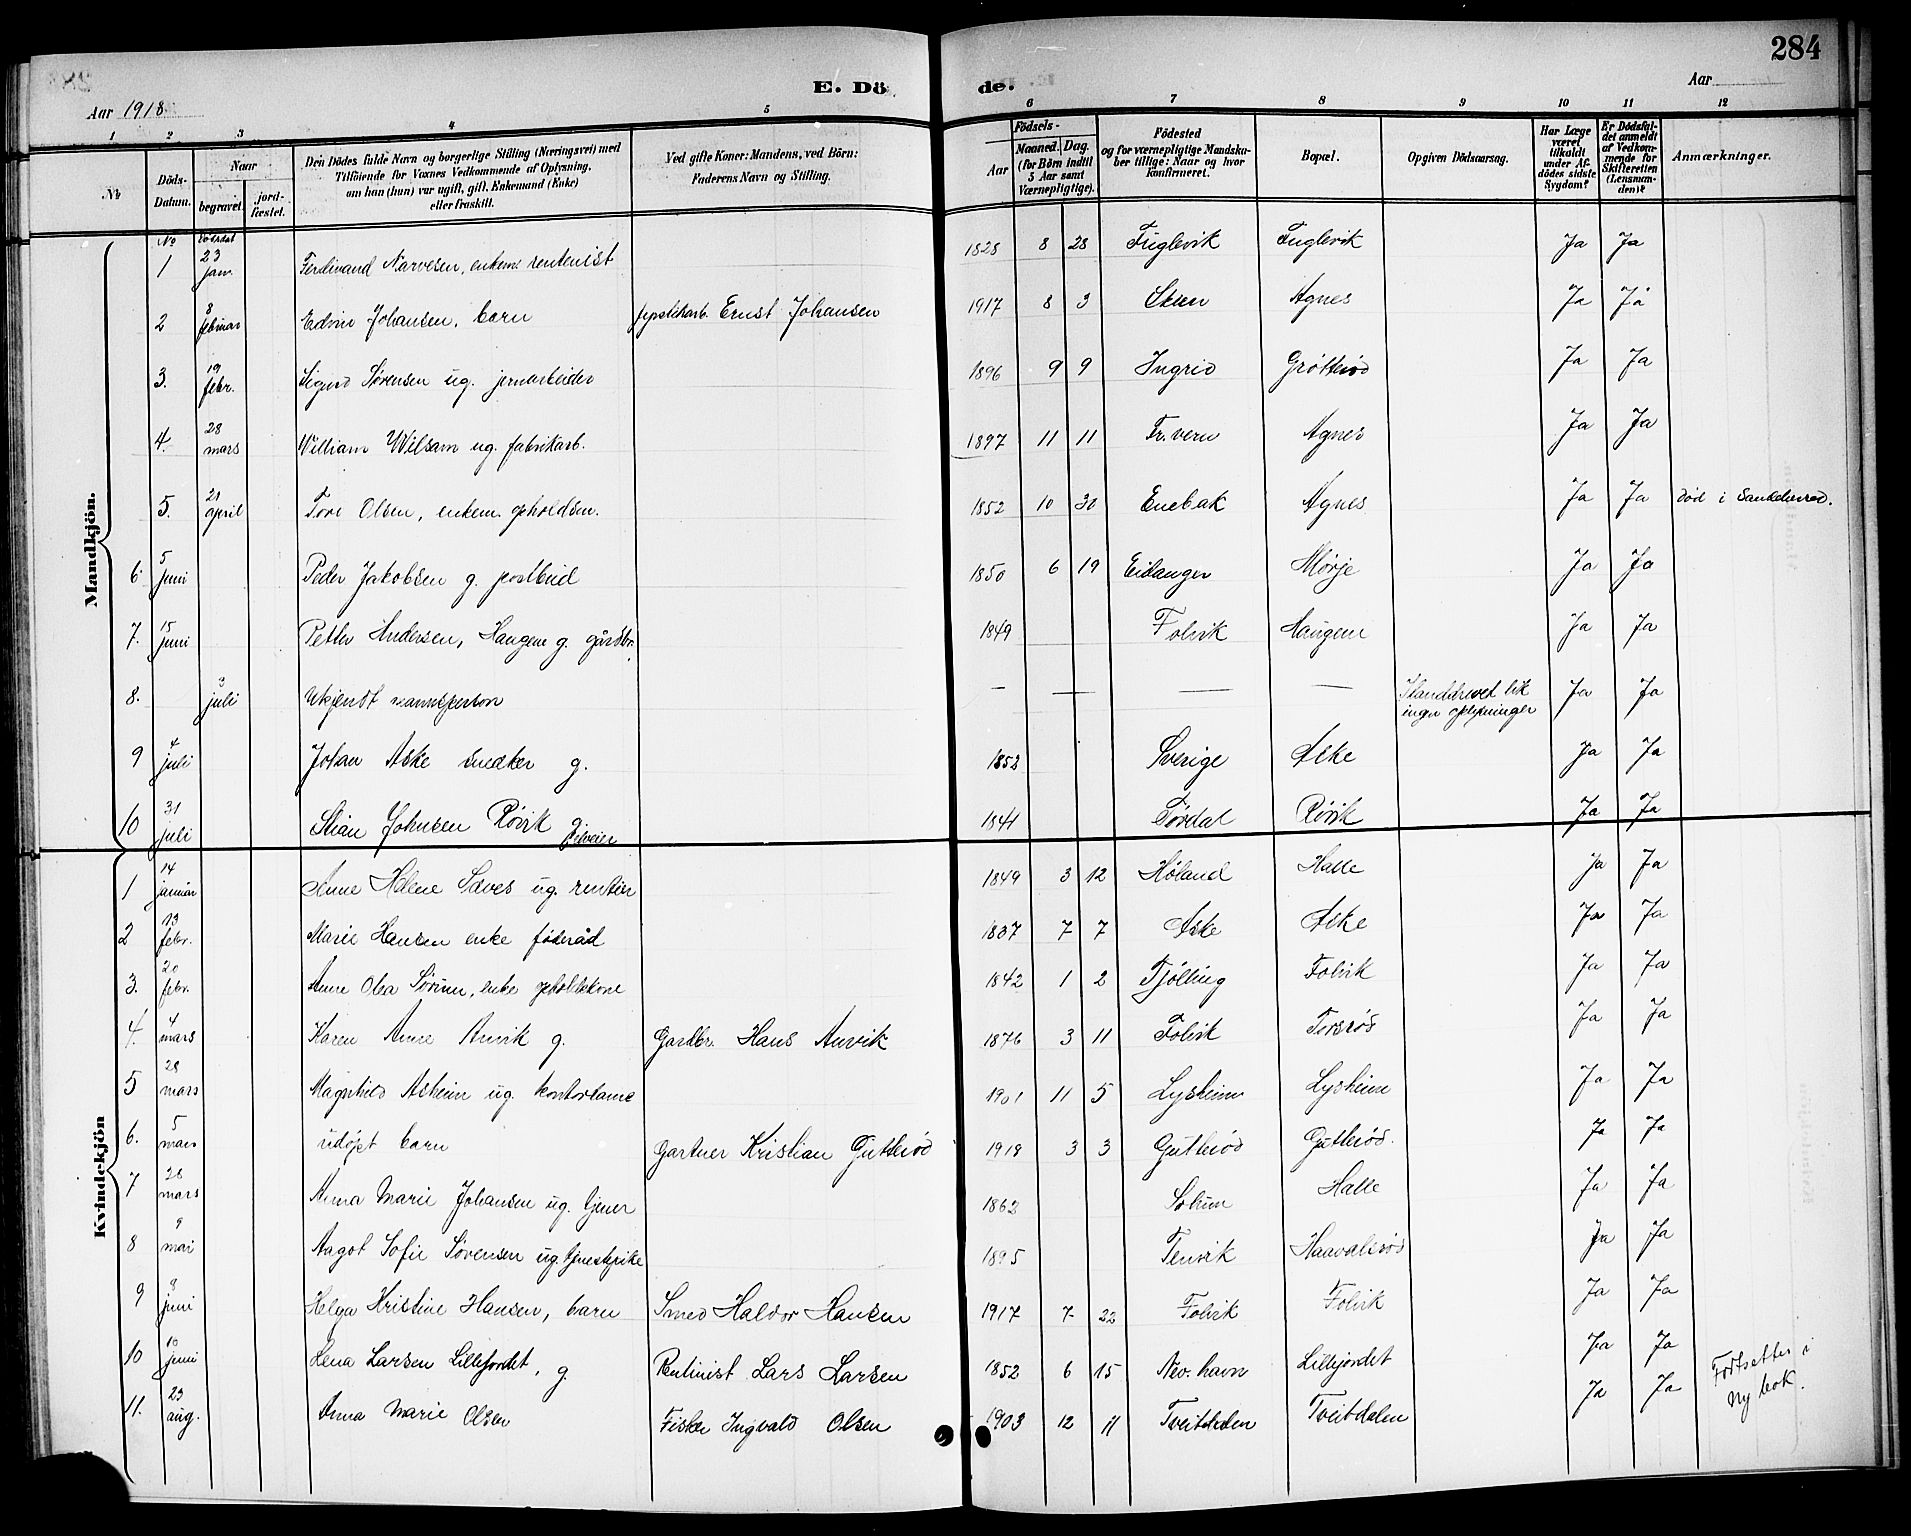 284
E. Dö de.
Aar 1918 Aar
1 2 3 4 5 6 7 8 9 10 11 12
No
Döds-Datum.
Naar
begravet.
jord-fæstet.
Den Dödes fulde Navn og borgerlige Stilling (Næringsvei) med
Tilföiende for Voxnes Vedkommende af Oplysning,
om han (hun) var ugift, gift, Enkemand (Enke)
eller fraskilt.
Ved gifte Koner: Mandens, ved Börn:
Faderens Navn og Stilling.
Födsels-
Aar
Maaned. Dag.
(for Börn indtil
5 Aar samt
Værnepligtige).
Födested
og for værnepligtige Mandska-
ber tillige: Naar og hvor
konfirmeret.
Bopæl.
Opgiven Dödsaarsag.
Har Læge
været
tilkaldt
under Af-
dödes sidste
Sygdom?
Er Dödsfal-
det anmeldt
af Vedkom-
mende for
Skifteretten
(Lensman-
den)?
Anmærkninger.
Mandkjön.
No
1 23 jan. Ferdinand Narvesen, enkem. rentenist 1828 8 28 Fuglevik Fuglevik Ja Ja
2 8 februar Edvin Johansen, barn Ernst Johansen 1917 8 3 Skien Agnes Ja Ja
3. 19 febr. Sigurd Sørensen ug. jernarbeider 1896 9 9 Ingrid Grøtterød Ja Ja
4. 28 mars William Wilsam ug. fabrikarb. 1897 11 11 Fr.vern Agnes Ja Ja
5. 21 april Tore Olsen, enkem. opholdsm. 1852 10 30 Enebak Agnes Ja Ja død i Sandeherred.
6. 5 juni Peder Jakobsen g. postbud 1850 6 19 Eidanger Mørje Ja Ja
7. 15 juni Petter Andersen, Haugene g. gårdbr. 1849 Folvik Haugene Ja Ja
8. 3 juli Ukjendt mannsperson — — — — Ilanddrevet lik Ja Ja
ingen oplysninger
9 4 juli Johan Aske snedker g. 1852 Sverige Aske Ja Ja
10 31 juli Stian Johnsen Røvik g. 1841 Tørdal Røvik Ja Ja
Kvindekjön
1 14 januar Anne Helene Sæves ug. rentier 1849 3 12 Høland Halle Ja Ja
2 13 febr. Marie Hansen enke føderåd 1837 7 7 Aske Aske Ja Ja
3. 20 febr. Anne Olea Sørum, enke opholdskone 1842 1 2 Tjølling Folvik Ja Ja
4. 4 mars Karen Anne Anvik g. Gardbr. Hans Anvik 1876 3 11 Folvik Torsrød Ja Ja
5 28 mars Magnhild Asheim ug. kontordame 1901 11 5 Lysheim Lysheim Ja Ja
6. 5 mars udøpt barn Gartner Kristian Gutterød 1918 3 3 Gutterød Gutterød. Ja Ja
7 28 mars Anna Marie Johansen ug. tjener 1862 Solum Halle Ja Ja
8 9 mai Aagot Sofie Sørensen ug. tjenestpike 1895 Tenvik Haavalsrød Ja Ja
9 9 juni Helga Kristine Hansen, barn Smed Haldor Hansen 1917 7 22 Folvik Folvik Ja Ja
10 10 juni Lena Larsen Lillejordet, g Rentinist Lars Larsen 1852 6 15 Nev. havn Lillejordet Ja Ja
11. 23 aug. Anna Marie Olsen Fisker Ingvald Olsen 1903 12 11 Tveitdalen Tveitdalen Ja Ja
Fortsettes i
ny bok.